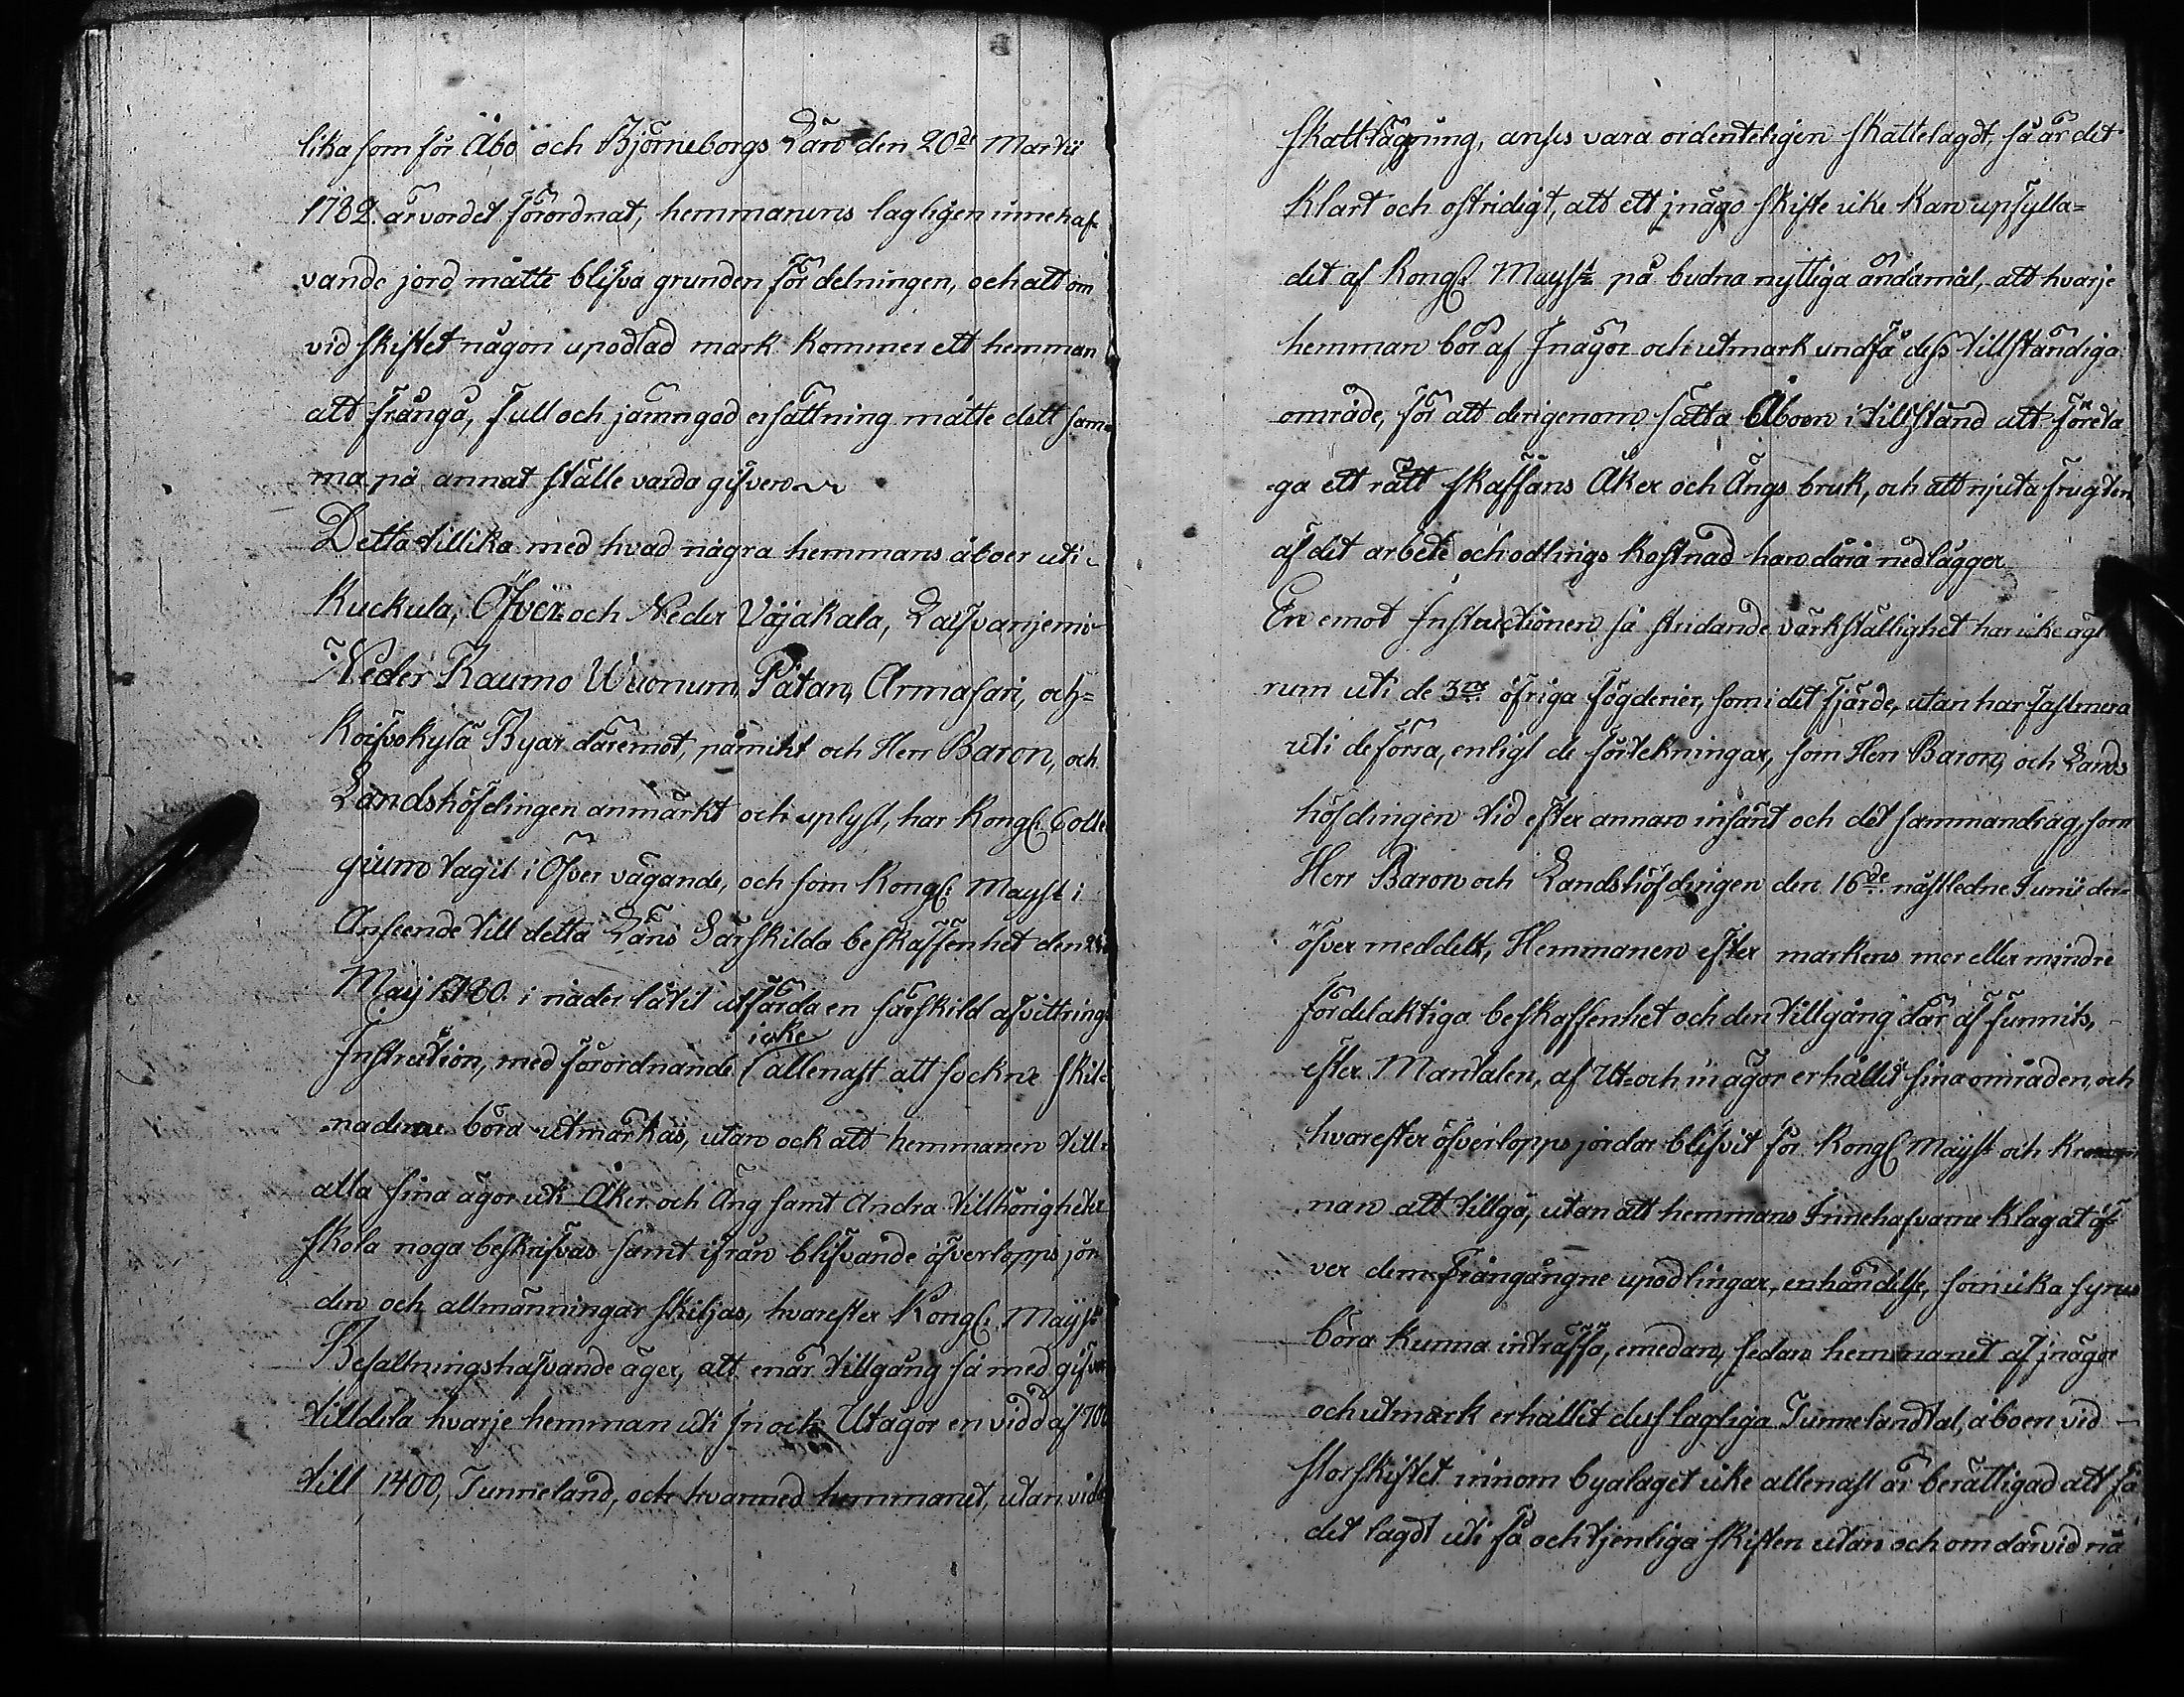 lika som för Åbo och Björneborgs Län den 20de Martii
1782. är vordet förordnat, hemmanens lagligen innehaf-
vande jord måtte blifva grunden för delningen, och att om
vid skiftet någon upodlad mark kommer ett hemman
att frångå, full och jämngod ersättning måtte dett sam-
ma på annat ställe varda gifven
Detta tillika med hvad några hemmans åboer uti
Kuckula, Öfver och Neder Väjakala,
Neder Raumo Wuonum, Pätan, Armasari, och=
Koifvokylä Byar däremot, påmint och Herr Baron, och
Landshöfdingen anmärkt och uplyst, har Kongl: Colle
gium tagit i Öfver vägande, och som Kongl: Mayst i
Anseende till detta Läns Särskilda beskaffenhet den
Maij 1780. i nåder låtit utfärda en särskild afvittrings
Instrution, med förordnande icke allenast att sockne skil-
naderne böra utmärkas, utan ock att hemmanen till
alla sina ägor uti Åker och Äng samt Andra tillhörigheter
skola noga beskrifvas samt ifrån blifvande öfverlopps jor
den och allmänningar skiljas, hvarefter Kongl: Mayst
Befallningshafvande äger, att enär tillgång så med gifver
tilldela hvarje hemman uti In och Utägor en vidd af 700
till 1400, Tunneland, och hvarmed hemmanet, utan vida
skattläggning, anses vara ordenteligen skattelagdt, så är det
klart och ostridigt, att ett jnägo skifte icke kan upfylla=
det af Kongl: Mayst på budna nyttiga ändamål, att hvarje
hemman bör af Inägor och utmark undfå dess tillständiga
område, för att derigenom sätta Åboen i tillstånd att företa
ga ett rätt skaffans Åker och Ängs bruk, och att njuta frugten
af det arbete och odlings kostnad han dära nedlägger
En emot Instructionen så stridande värkställighet har icke ägt
rum uti de 3ne öfriga fögderier, som i det fjärde, utan har fastmera
uti de förra, enligt de förtekningar, som Herr Baron, och Lands
höfdingen tid efter annan insänt och det sammandrag, som
Herr Baron och Landshöfdingen den 16de nästledne Junii der-
öfver meddelt, Hemmanen efter markens mer eller mindre
fördelaktiga beskaffenhet och den tillgång där af funnits,
efter Mantalen, af Ut- och inägor erhållit sina områden, och
hvarefter öfverlopps jordar blifvit för Kongl Mayst och Kro
nan att tillgå, utan att hemmans Innehafvarne klagat öf
ver dem frångångne upodlingar, en händelse, som icka synes
böra kunna inträffa, emedan, sedan hemmanet af jnägor
och utmark erhållit dess lagliga Tunnelandtal, åboen vid
storskiftet innom byalaget icke allenast är berättigad att få
det lagdt uti få och tjenliga skiften utan och om därvid nå